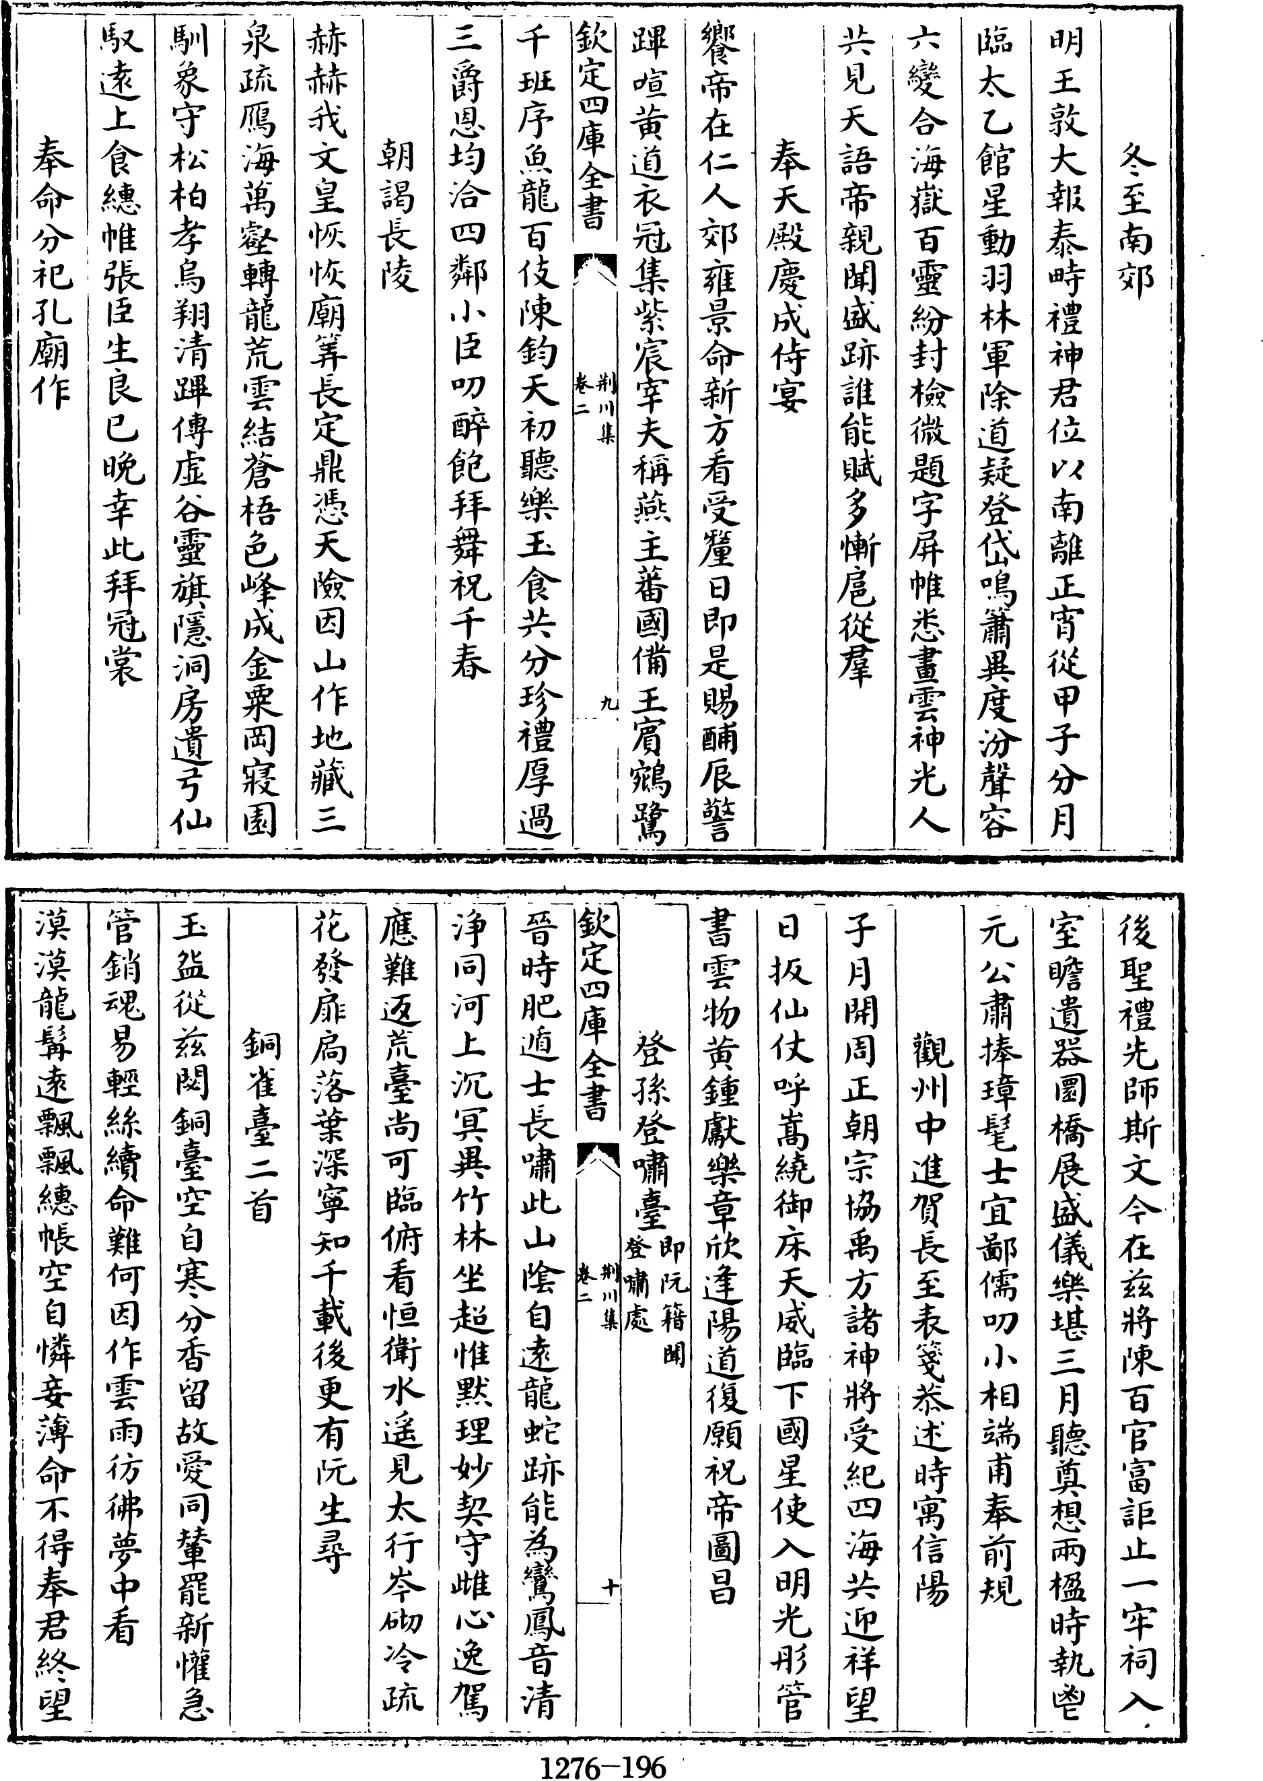 冬至南郊
明王敦大報泰畤禮神君位以南離正宵從甲子分月
臨太乙館星動羽林軍除道疑登岱鳴簫異度汾聲容
六變合海嶽百靈紛封檢微題字屏帷悉畫雲神光人
共見天語帝親聞盛跡誰能賦多慚扈從羣
奉天殿慶成侍宴
饗帝在仁人郊雍景命新方看受釐日即是賜酺辰警
蹕喧黄道衣冠集紫宸宰夫稱燕主蕃國備王賓鵷鷺
欽定四庫全書
荆川集
卷二
九
千班序魚龍百伎陳鈞天初聽樂玉食共分珍禮厚過
三爵恩均洽四鄰小臣叨醉飽拜舞祝千春
朝謁長陵
赫赫我文皇恢恢廟筭長定鼎憑天險因山作地藏三
泉疏鴈海萬壑轉龍荒雲結蒼梧色峰成金粟岡寢園
馴象守松柏孝烏翔清蹕傳虚谷靈旗隱洞房遺弓仙
馭遠上食繐帷張臣生良已晚幸此拜冠裳
奉命分祀孔廟作
後聖禮先師斯文今在兹將陳百官富詎止一牢祠入
室瞻遺器圜橋展盛儀樂堪三月聽奠想兩楹時執鬯
元公肅捧璋髦士宜鄙儒叨小相端甫奉前規
觀州中進賀長至表箋恭述時寓信陽
子月開周正朝宗協禹方諸神將受紀四海共迎祥望
日扳仙仗呼嵩繞御床天威臨下國星使入明光彤管
書雲物黄鍾獻樂章欣逢陽道復願祝帝圖昌
登孫登嘯臺
即阮籍聞
登嘯處
欽定四庫全書
荆川集
卷二
十
晉時肥遁士長嘯此山陰自遠龍蛇跡能為鸞鳳音清
浄同河上沉冥異竹林坐超惟默理妙契守雌心逸駕
應難返荒臺尚可臨俯看恒衛水遥見太行岑砌冷疏
花發扉扃落葉深寧知千載後更有阮生尋
銅雀臺二首
玉盌從兹閟銅臺空自寒分香留故愛同輦罷新懽急
管銷魂易輕絲續命難何因作雲雨彷彿夢中看
漠漠龍髯遠飄飄繐帳空自憐妾薄命不得奉君終望
1276-196